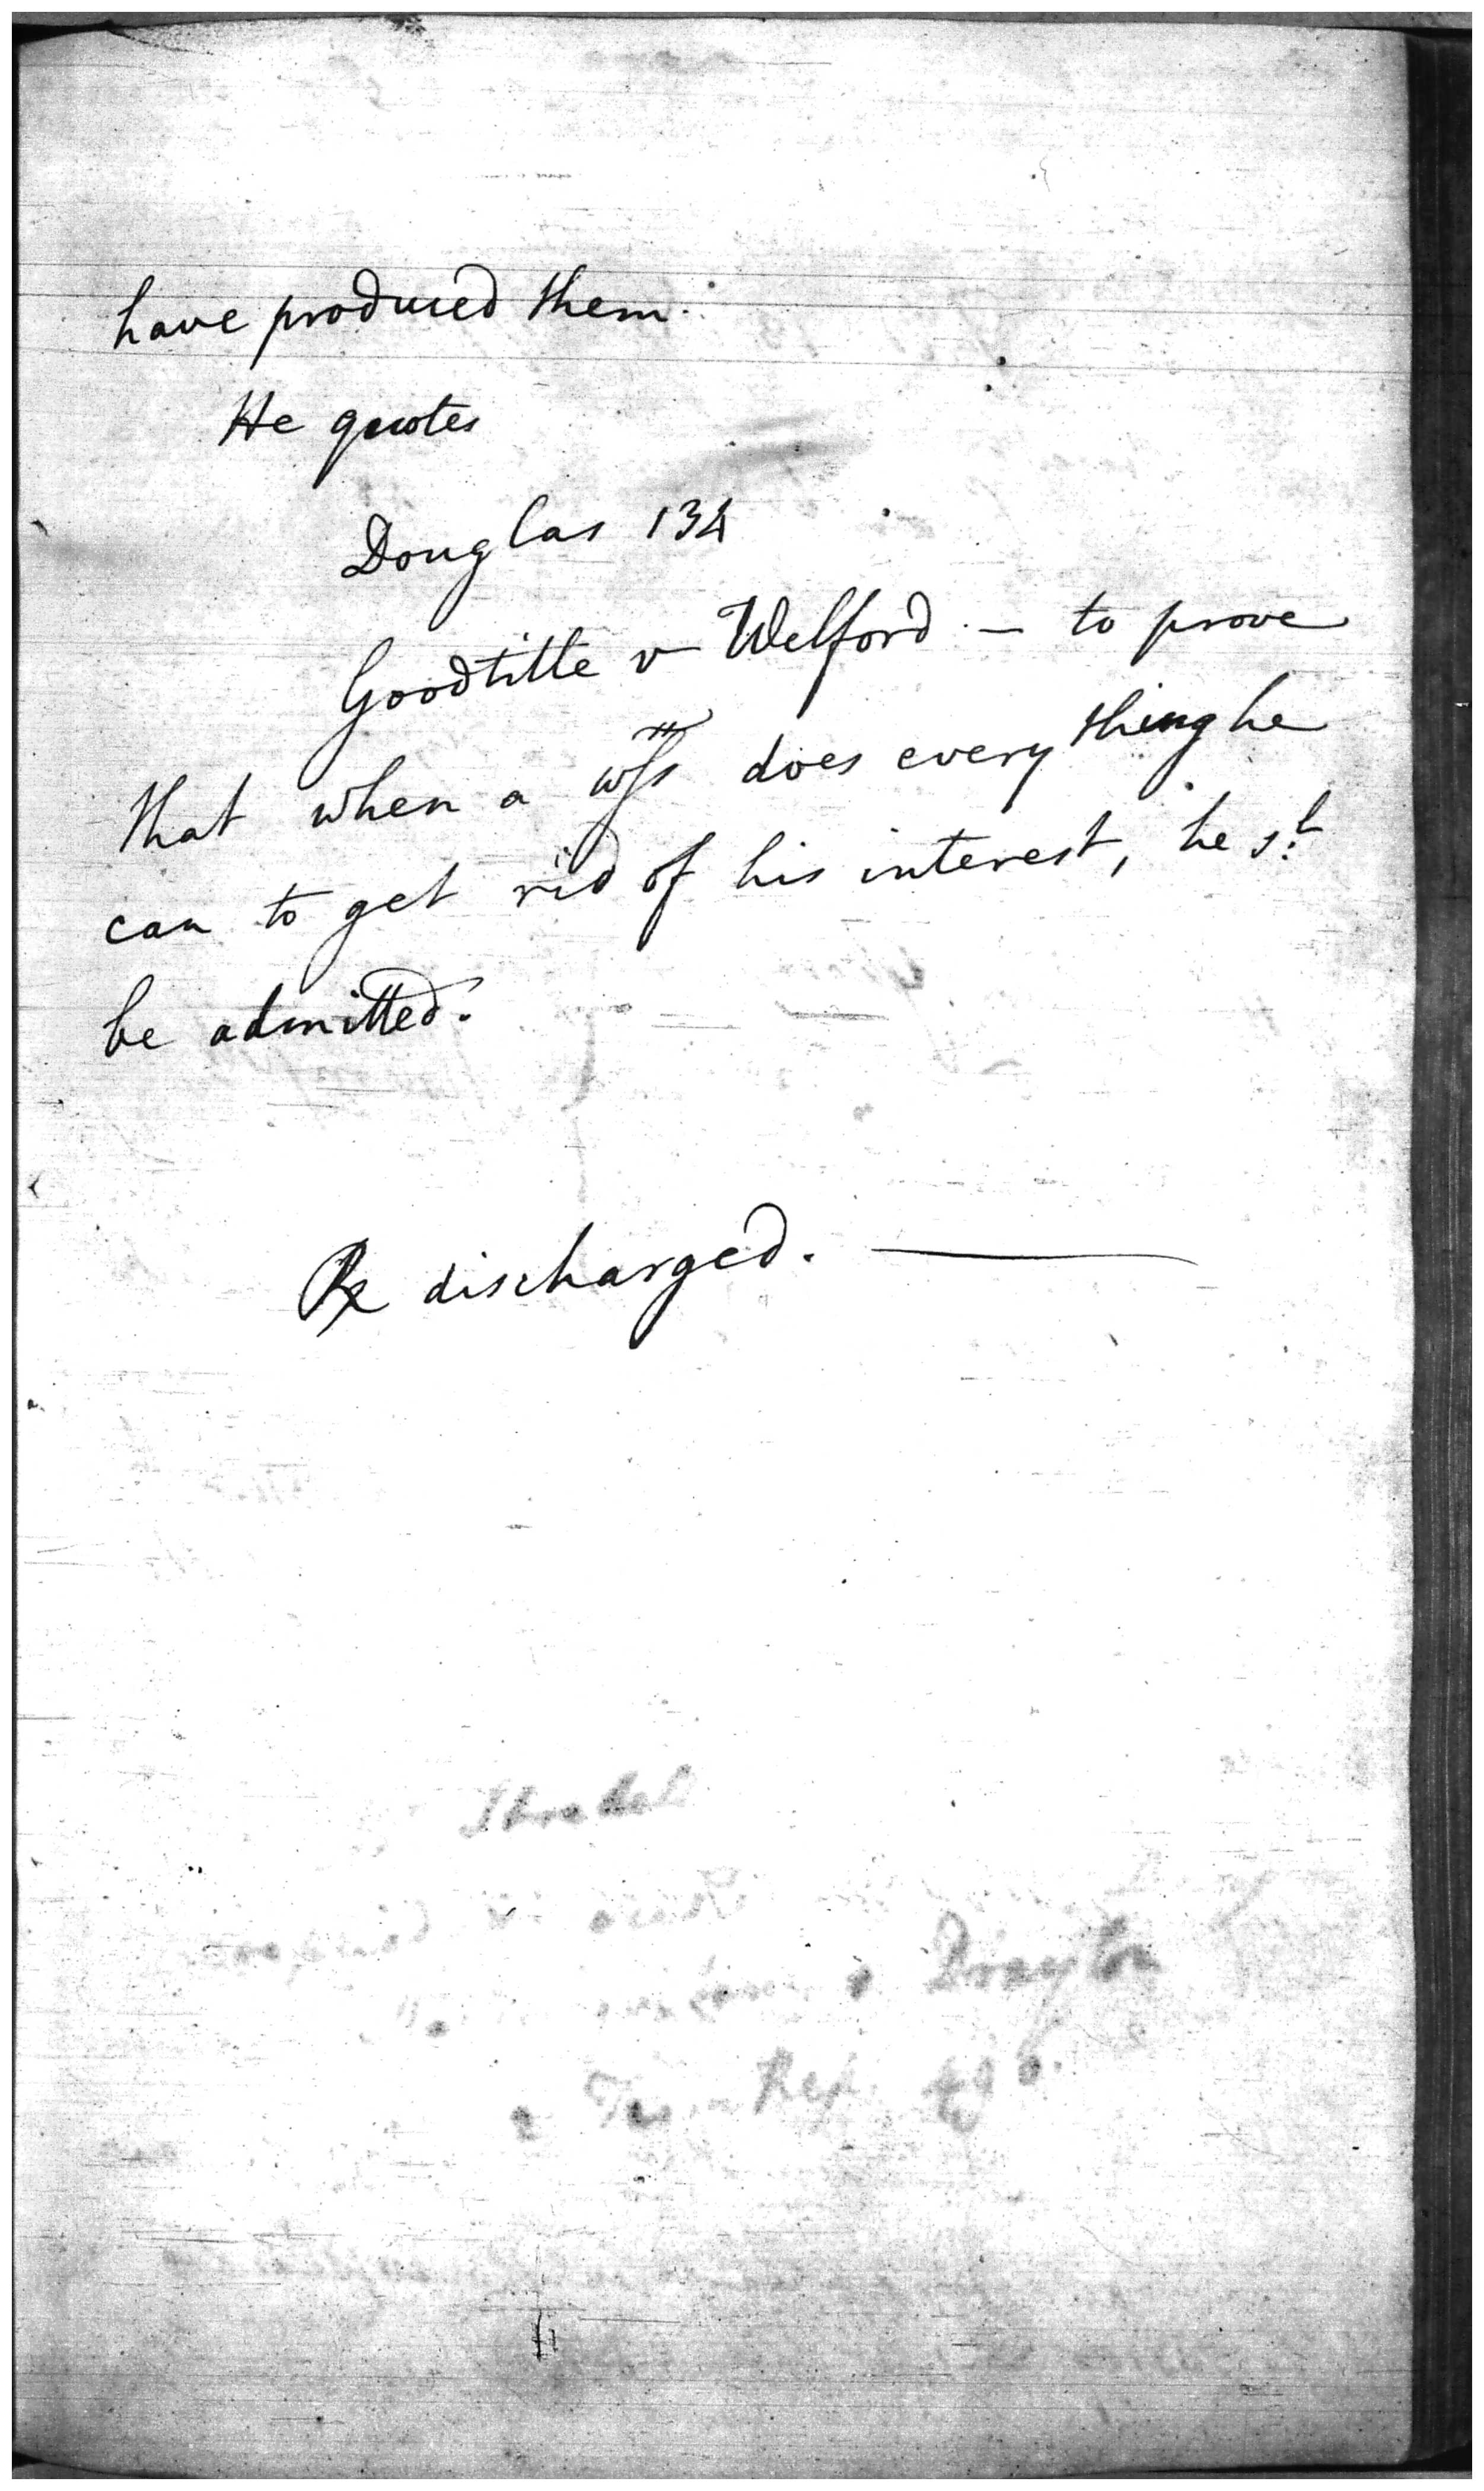 have produced them.
He quotes
Douglas 134
Goodtitle v Welford - to prove
that when a wss does every thing he
can to get rid of his interest, he sh.
be admitted.
Re discharged. —
Drayton
Rep.